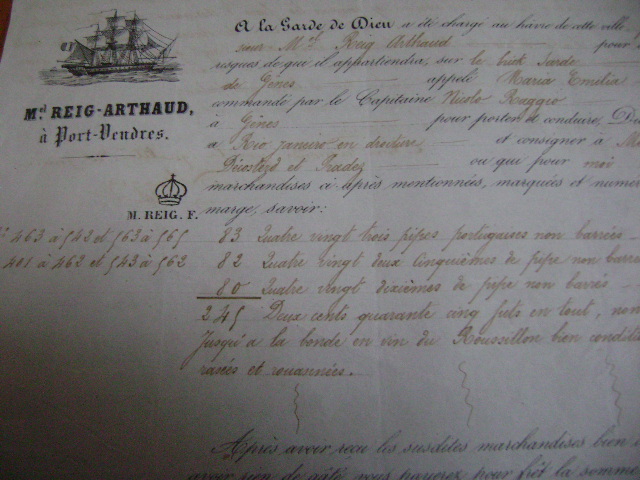 Mel REIG-ARTHAUD,
à Port-Vendres.
M. REIG. F.
A la Garde de Dieu a été chargé au hâvre de cette ville,
sieur Mel Reig Arthaud pour
risques de qui il appartiendra, sur le brick Sarde
de Gênes appelé Maria Emilia
commandé par le Capitaine Nicolo Ruggio
à Gênes pour porter et conduire,
à Rio Janeiro en droiture, et consigner à
Décosterd et Pradez ou qui pour moi
marchandises ci-après mentionnées, marquées et
marge, savoir:
463 à 542 et 563 à 565 83 Quatre vingt trois pipes portugaises non barrées
401 à 462 et 543 à 562 82 Quatre vingt deux cinquièmes de pipe non
80 Quatre vingt dixièmes de pipe non barrés
245 Deux cents quarante cinq futs en tout,
Jusqu'à la bonde en vin du Roussillon bien
rasées et rouannées.
Après avoir reçu les susdites marchandises bien
avoir rien de gâté, vous payerez pour frêt la somme